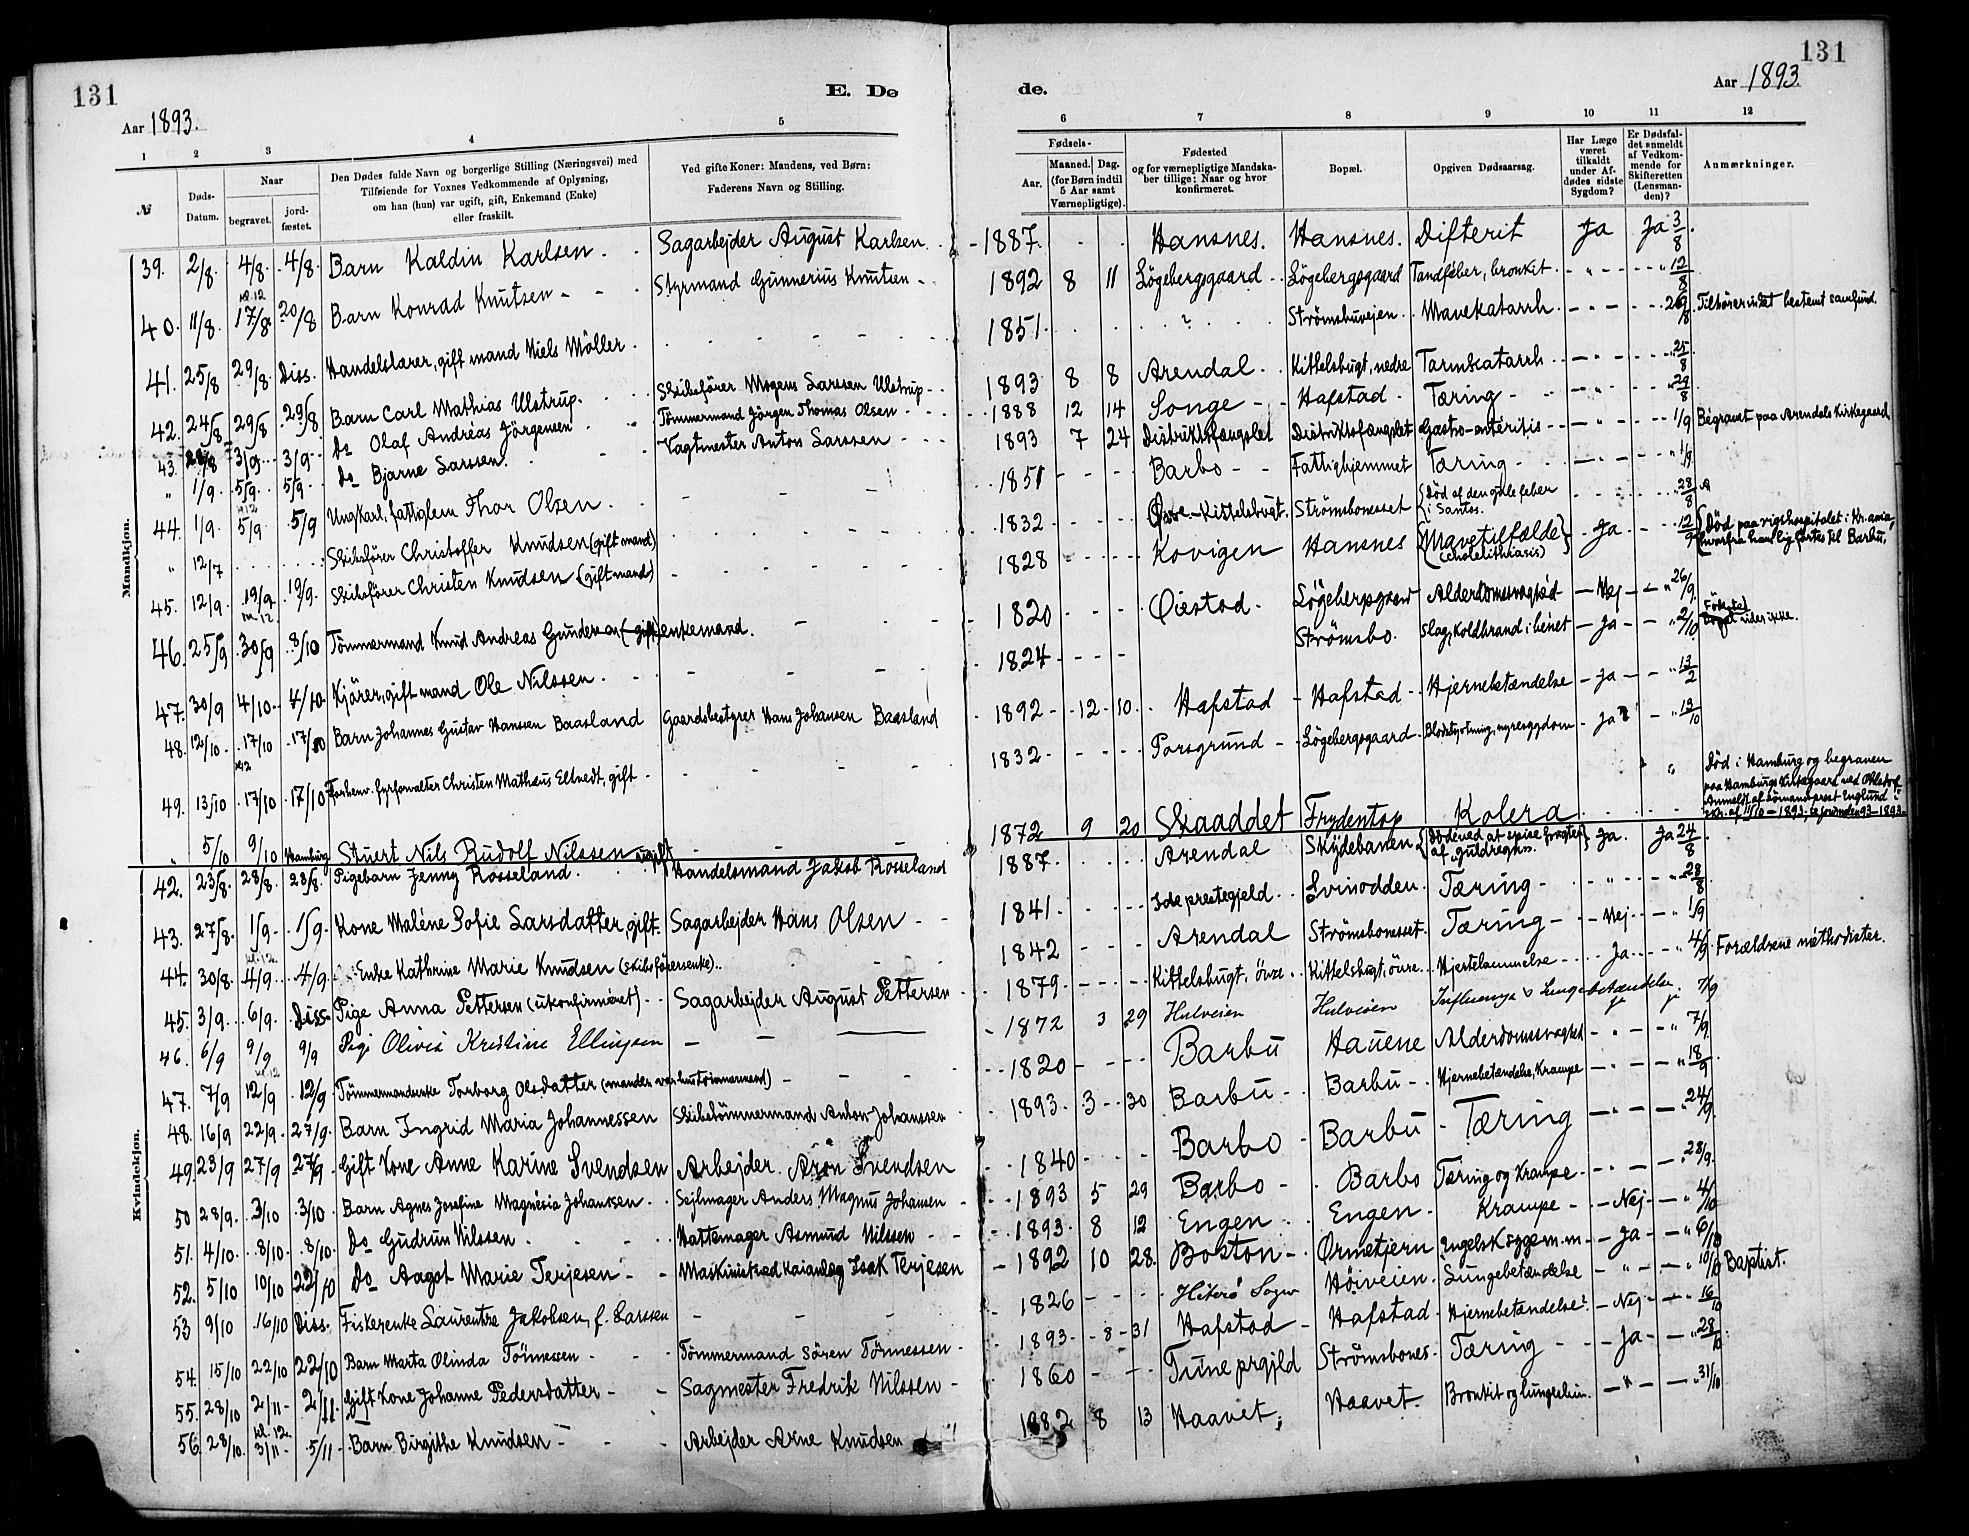 131
131
E. Dø
de.
Aar 1893.
Aar 1893.
1 2 3 4 5
6 7 8 9 10 11 12
№
Døds-Datum.
Naar
begravet.
jord-fæstet.
Den Dødes fulde Navn og borgerlige Stilling (Næringsvei) med
Tilføiende for Voxnes Vedkommende af Oplysning,
om han (hun) var ugift, gift, Enkemand (Enke)
eller fraskilt.
Ved gifte Koner: Mandens, ved Børn:
Faderens Navn og Stilling.
Fødsels-
Aar.
Maaned. Dag.
(for Børn indtil
5 Aar samt
Værnepligtige).
Fødested
og for værnepligtige Mandska-
ber tillige: Naar og hvor
konfirmeret.
Bopæl.
Opgiven Dødsaarsag.
Har Læge
været
tilkaldt
under Af-
dødes sidste
Sygdom?
Er Dødsfal-
det anmeldt
af Vedkom-
mende for
Skifteretten
(Lensman-
den)?
Anmærkninger.
Mandkjøn.
39. 2/8. 4/8. 4/8. Barn Kaldin Karlsen Sagarbejder August Karlsen 1887. Hansnes. Hansnes. Difterit Ja Ja 3/8.
40. 11/8. kl. 12 17/8. 20/8 Barn Konrad Knutsen Styrmand Gunnerius Knutsen 1892 8 11 Lögebergsgaard Lögebergsgaard Tandfeber, bronkit - " - - " 12/8
41. 25/8 29/8. Diss. Handelslærer, gift mand Niels Möller 1851. ? Strömsbuvejen. Mavekatarrh - " - 26/8 Tilhører intet bestemt samfund.
42. 24/8 29/8 29/8 Barn Carl Mathias Ulstrup. Skibsfører Mogens Larssen Ulstrup 1893 8 8 Arendal. Kittelsbugt, nedre Tarmkatarrh - " - " 25/8
43. 3/9 3/9 do Olaf Andréas Jörgensen Tömmermand Jörgen Thomas Olsen 1888 12 14 Songe Hafstad Tæring - " - " 29/8
" 1/9. 5/9. 5/9. do Bjarne Larssen. Vagtmester Anton Larssen 1893 7 24 Distriktsfængslet Distriktsfængslet Gastro-entéritis - " - 1/9 Begravet paa Arendals Kirkegaard
44. 1/9. kl 12 5/9 5/9 Ungkarl, fattiglem Thor Olsen. 1851 Barbo Fattighjemmet Tæring - " - " 1/9
" 12/7 Skibsfører Christoffer Knudsen (gift mand) 1832 Øvre-Kittelsbugt. Strömsbonesset {Död af den gule feber i Santos. " 28/8
45. 12/9. 19/9. 19/9. Skibsfører Christen Knudsen (gift mand) 1828 Kovigen Hansnes {Mavetilfælde (cholelithiasis)} Ja 12/9 {Död paa rigshospitalet i Kr.ania, hvorfra hans lig førtes til Barbu.
46. 25/9 kl. 12. 30/9 8/10 Tömmermand Knud Andreas Gundersen (gift) enkemand. 1820 Öiestad. Lögebergsgaard Alderdomssvaghed - Nej - " 26/9.
47. 30/9 4/10 4/10 Kjörer, gift mand Ole Nilssen. 1824 Strömsbo. Slag, Koldbrand i benet - Ja - " 2/10 Födested vides ikke.
48. 12/10. 17/10 17/10 Barn Johannes Gustav Hanssen Baasland Gaardsbestyrer Hans Johansen Baasland 1892 12 10. Hafstad Hafstad Hjernebetændelse - Ja - " 13/2
49. 13/10 kl 12 17/10 17/10 Forhenv. fyrforvalter Christen Mathæus Eltvedt, gift 1832 Porsgrund Lögebergsgaard Blodstyrtning, nyresygdom - Ja - 13/10
" 5/10 9/10 Hamburg Stuert Nils Rudolf Nilssen ugift 1872 9 20 Skaaddet Frydentop Kolera Död i Hamburg og begraven paa Hamburgs Kirkegaard ved Ohlsdorf. Anmeldt af sömandsprest Englund i skr. af 11/10-1893.
Kvindekjøn.
42. 23/8. 28/8. 28/8. Pigebarn Jenny Rosseland. Handelsmand Jakob Rosseland 1887. Arendal Skydebanen {Döde ved at spise frugter af guldregn.} Ja. Ja 24/8
43. 27/8. 1/9. 1/9. Kone Maléne Sofie Larsdatter, gift. Sagarbejder Hans Olsen 1841. Ide prestegjeld Svinodden. Tæring " 28/8
44. 30/8. kl. 12. 4/9. 4/9. Enke Kathrine Marie Knudsen (skibsførersenke). 1842 Arendal Strömsbonesset. Tæring - Nej - " 1/9
45. 3/9. 6/9. Diss. Pige Anna Pettersen (ukonfirméret) Sagarbejder August Pettersen 1879. Kittelsbugt, övre. Kittelsbugt, övre. Hjertelammelse Ja. " 4/9 Forældrene méthodister.
46. 6/9 9/9 9/9 Pige Olivia Kristine Ellingsen 1872 3 29 Hulveien Hulveien Influenza & Lungebetændelse. ja ja 7/9
47. 7/9 kl. 12 12/9 12/9 Tömmermandsenke Torborg Olsdatter (manden var hustömmermand) 1820 Barbu Hauene Alderdomssvaghed - " - " 7/9.
48. 16/9 22/9. 27/9. Barn Ingrid Maria Johannessen Skibstömmermand Anton Johanssen 1893. 3 30 Barbu Barbu Hjernebetændelse, Krampe - " - " 18/9
49. 23/9 27/9 27/9 Gift Kone Anne Karine Svendsen Arbejder Aron Svendsen 1840 Barbo Barbu Tæring - " - " 24/9.
50. 28/9. 3/10 3/10. Barn Agnes Josefine Magnésia Johanssen Sejlmager Anders Magnus Johansen 1893 5 29 Barbo Barbo Tæring og Krampe - " - " 28/9.
51. 4/10. 8/10. 8/10. do Gudrun Nilssen. Hattemager Asmund Nilssen 1893. 8 12 Engen Engen Krampe - Nej - " 4/10
52. 5/10 10/10 22/10 do Aagot Marie Terjesen Maskinist Isak Terjesen 1892 10 28. Boston Ørmetjern Engelsk sygem.m. - Ja - " 6/10
53 9/10 16/10 Diss. Fiskerenke Laurentze Jakobsen, f. Larssen 1826 Hiterö Sogn Höiveien. Lungebetændelse - " - " 10/10 Baptist.
54. 15/10 22/10 22/10 Barn Marta Olinda Tönnessen Tömmermand Sören Tönnessen 1893 8 31 Hafstad Hafstad Hjernebetændelse? - Nej - " 16/10
55. 28/10 2/11 2/11. Gift Kone Johanne Pedersdatter Sagmester Fredrik Nilssen 1860 Tune prgjld Strömsbones Tæring - Ja - " 28/10
56. 28/10. kl. 12. 3/11 5/11 Barn Birgithe Knudsen Arbejder Arne Knudsen 1882 8 13 Haavet Haavet Bronkit og lungebet. - " - " 31/10